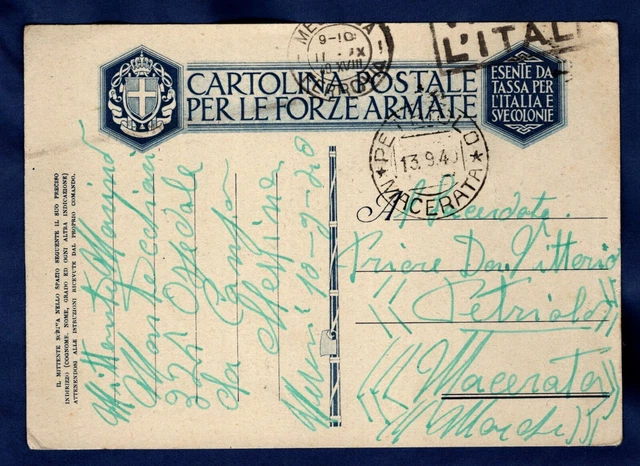 MESSINA
9-10
XVIII
L'ITAL
CARTOLINA POSTALE
PER LE FORZE ARMATE
ESENTE DA
TASSA PER
L'ITALIA E
SVE COLONIE
PETRIOLO
13.9.40
MACERATA
IL MITTENTE SCRIVA NELLO SPAZIO SEGUENTE IL SUO PRECISO
INDIRIZZO (COGNOME, NOME, GRADO ED OGNI ALTRA INDICAZIONE)
ATTENENDOSI ALLE ISTRUZIONI RICEVUTE DAL PROPRIO COMANDO.
Mittente Marino
324 Ospedale
Da Campo
Messina
10-9-40
A
Priore Don Vittorio
Petriolo
Macerata
(Marche)